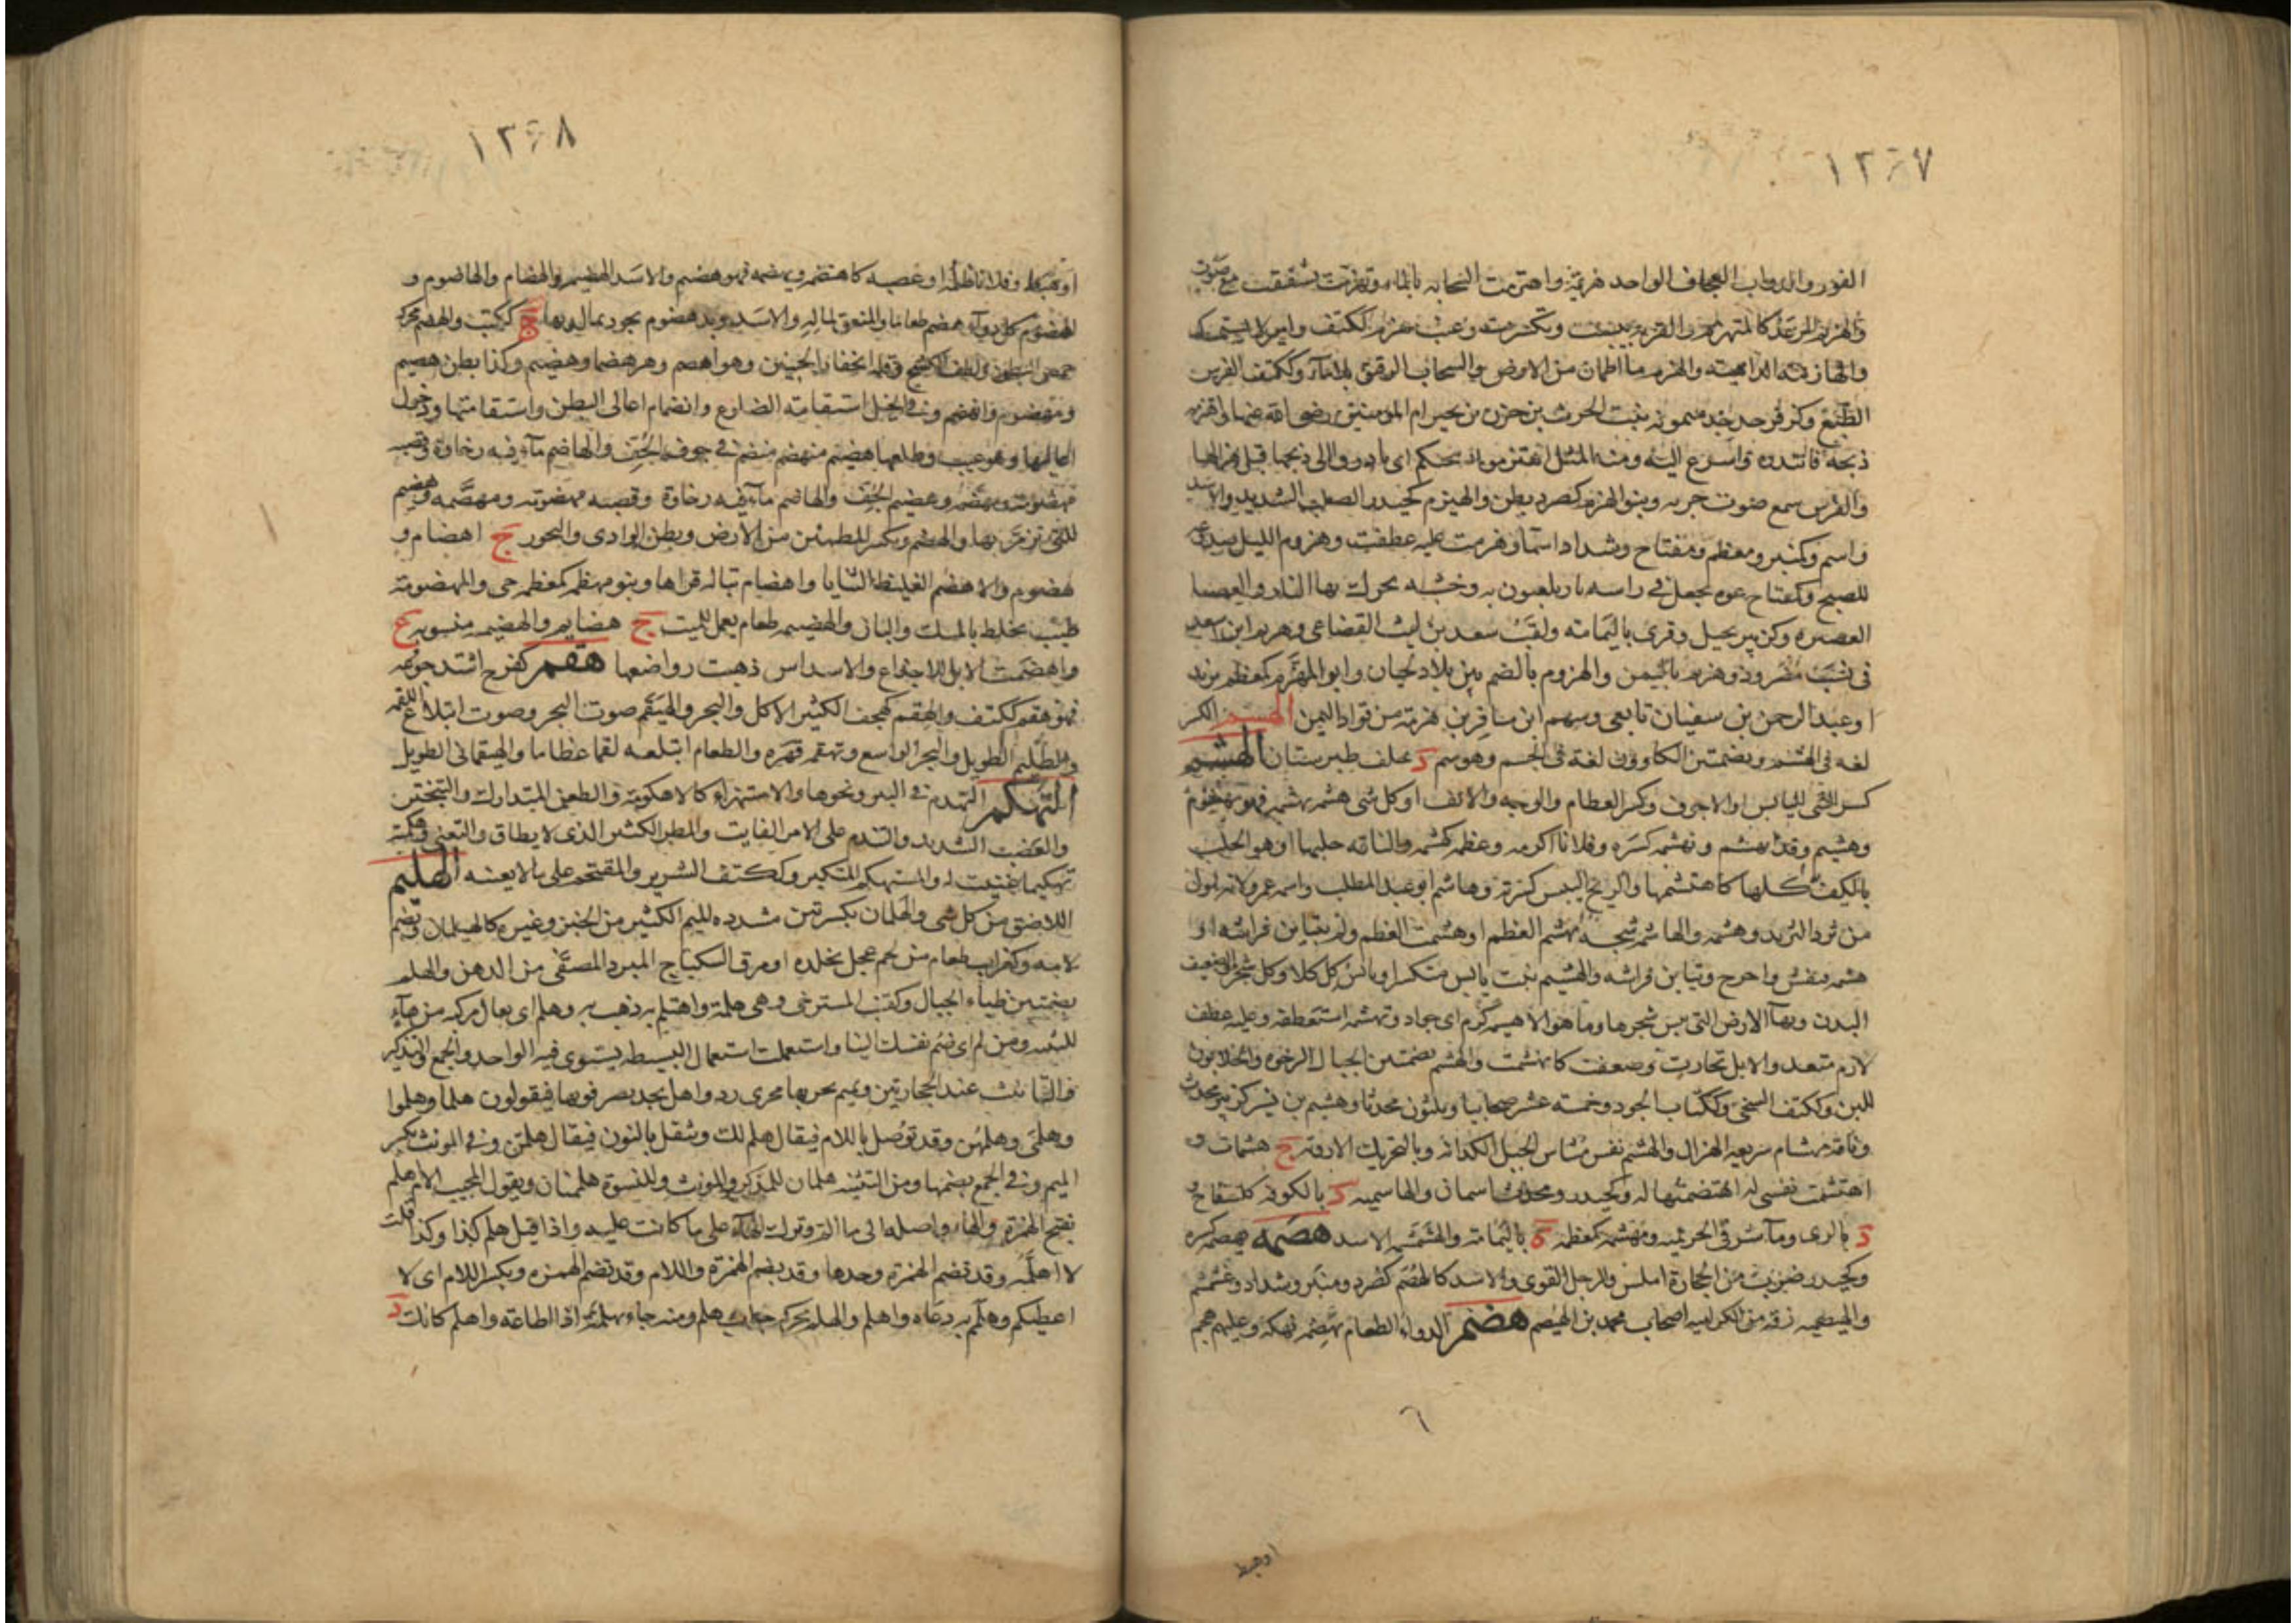 ١٢٦٧
القدور والدواب العجاف الواحد هزيمة واهتزمت السحابة بالماء وتهزمت تشققت مع صوت
والهزيم الرعد كالمتهزم والقربة يبست وتكسرت وغيث هزم ككتف وامير لا يستمسك
والهازمة الداهية والهزم ما اطمان من الارض والسحاب الرقيق بلا ماء وككتف الفرس
الطيع وكزفر جد جد ميمونة بنت الحرث بن حزن بن بجير ام المومنين رضى الله عنها واهتزمه
ذبحه فابتدره واسرع اليه ومنه المثل اهتزموا ذبيحتكم اى بادروا الى ذبحها قبل هزالها
والفرس سمع صوت جريه وبنو الهزم كصرد بطن والهيزم كحيدر الصلب الشديد والاسد
واسم وكمنبر ومعظم ومفتاح وشداد اسما وهزمت عليه عطفت وهزوم الليل صدوعه
للصبح وكمفتاح عود يجعل فى راسه نار يلعبون به وخشبة يحرك بها النار والعصا
القصيرة وكزبير نخيل وقرى باليمامة ولقب سعد بن ليث القضاعى وهزيم ابن اسعد
فى نسب حضر وذو هزيم باليمن والهزوم بالضم بين بلاد لحيان وابو المهزم كمعظم يزيد
او عبد الرحمن بن سفيان تابعى وسهم ابن مسافر بن هزمة من قواد اليمن الهسم الكسر
لغة فى الهشم وبضمتين الكاوون لغة فى الحسم وهوسم د خلف طبرستان الهشم
كسر الشى اليابس او الاجوف وكسر العظام والوجه والانف او كل شى هشمه يهشمه فهو مهشوم
وهشيم وقد انهشم وتهشم كسره وفلانا اكرمه وعظمه كهشمه والناقة حلبها او هو الحلب
بالكف كلها كاهتشمها والريح اليبس كسرته وهاشم ابو عبد المطلب واسمه عمرو لانه اول
من ثرد الثريد وهشمه والهاشمة شجة تهشم العظم او هشمت العظم ولم يتباين فراشه او
هشمته فنقش واخرج وتباين فراشه والهشيم نبت يابس متكسر او يابس كل كلا وكل شجر والضعيف
البدن وبهاء الارض التى يبس شجرها وما هو الا هشيمة كرم اى جواد وتهشمه استعطفه وعليه عطف
لازم متعد والابل خارت وضعفت كانهشمت والهشم بضمتين الجبال الرخوة والحلابون
للبن وككتف السخى وككتاب الجود وخمسة عشر صحابيا وثلثون محدثا وهشيم بن بشير كزبير محدث
وناقة مهشام سريعة الهزال والهشم نفس مشاش الجبل الكدانة وبالتحريك الاروية ج هشمات و
اهتشمت نفسى له اهتضمتها له وكحيدر ومحدث اسمان والهاشمية د بالكوفة
د بالرى وماء شرقى الخزيمية ومهشمة كمعظمة ة باليمامة والهشمشم الاسد هصمه يهصمه كسره
وكحيدر ضرب من الحجارة املس والرجل القوى والاسد كالهصم كصرد ومنبر وشداد وغشمشم
والهيصمية فرقة من الكرامية اصحاب محمد بن الهيصم هضم الدواء الطعام يهضمه نهكه وعليهم هجم
٦
او هبط
١٢٦٨
او هبط وفلانا ظلمه او غصبه كاهتضمه وتهضمه فهو هضيم والاسد الهضيم والهضام والهاضوم و
الهضوم كل دواء هضم طعاما والمنفق لماله والاسد ويد هضوم يجود بمال لديها ج ككتب والهضم محركة
خمص البطون ولطف الكشح وقلة انجفار الجنبين وهو اهضم وهى هضماء وهضيم وكذا بطن هضيم
ومهضوم واهضم وفى الخيل استقامة الضلوع وانضمام اعالى البطن واستقامتها ودخول
اعاليها وهو عيب وطلعها هضيم منهضم منضم فى جوف الجف والهاضم ما فيه رخاوة وقصبة
مهضومة ومهضمة وهضيم الجف والهاضم ما فيه رخاوة وقصبة مهضومة ومهضمة وهضيم
للتى يزمر بها والهضم ويكسر المطمئن من الارض وبطن الوادى والبخور ج اهضام و
هضوم والاهضم الغليظ الثنايا واهضام تبالة قراها وبنو مهضمة كمعظمة حى والمهضومة
طيب يخلط بالمسك والبان والهضيمة طعام يعمل للميت ج هضايم والهضيمة منسوبة ع
واهضمت الابل للاجذاع والاسداس ذهبت رواضعها هقم كفرح اشتد جوعه
فهو هقم ككتف والهقم كهجف الكثير الاكل والبحر والهيقم صوت البحر وصوت ابتلاع اللقمة
والظليم الطويل والبحر الواسع وتهقمه قهره والطعام ابتلعه لقما عظاما والهيقمانى الطويل
التهكم التهدم فى البئر ونحوها والاستهزاء كالاهكومة والطعن المتدارك والتبختر
والغضب الشديد والتندم على الامر الفايت والمطر الكثير الذى لا يطاق والتغنى وهكمته
تهكيما غنيت له والمستهكم المتكبر وككتف الشرير والمقتحم على ما لا يعنيه الهليم
اللاصق من كل شى والهلمان بكسرتين مشددة الميم الكثير من الخبز وغيره كالهيلمان وتضم
لامه وكغراب طعام من لحم عجل بجلده او مرق السكباج المبرد المصفى من الدهن والهلم
بضمتين ظباء الجبال وكقنب المسترخى وهى هلمة واهتلم به ذهب به وهلم اى تعال مركبة من هاء
للتنبيه ومن لم اى ضم نفسك الينا واستعملت استعمال البسيطة يستوى فيه الواحد والجمع والتذكير
والتانيث عند الحجازيين وتميم تجريها مجرى رد واهل نجد يصرفونها فيقولون هلما وهلموا
وهلمى وهلممن وقد توصل باللام فيقال هلم لك وتثقل بالنون فيقال هلمن وفى المونث بكسر
الميم وفى الجمع بضمها ومن التثنية هلمان للمذكر والمونث وللنسوة هلممنان ويقول المجيب الام اهلم
بفتح الهمزة والهاء واصله الى ما الم وتركت الهاء على ما كانت عليه واذا قيل هلم كذا وكذا قلت
لا اهلمه وقد تضم الهمزة وحدها وقد يضم الهمزة واللام وقد تضم الهمزة ويكسر اللام اى لا
اعطيكم وهلم به دعاه واهلم والهلمة محركة هلم ومنه جاء بهلمة اذا اطاعه واهلم كانك د